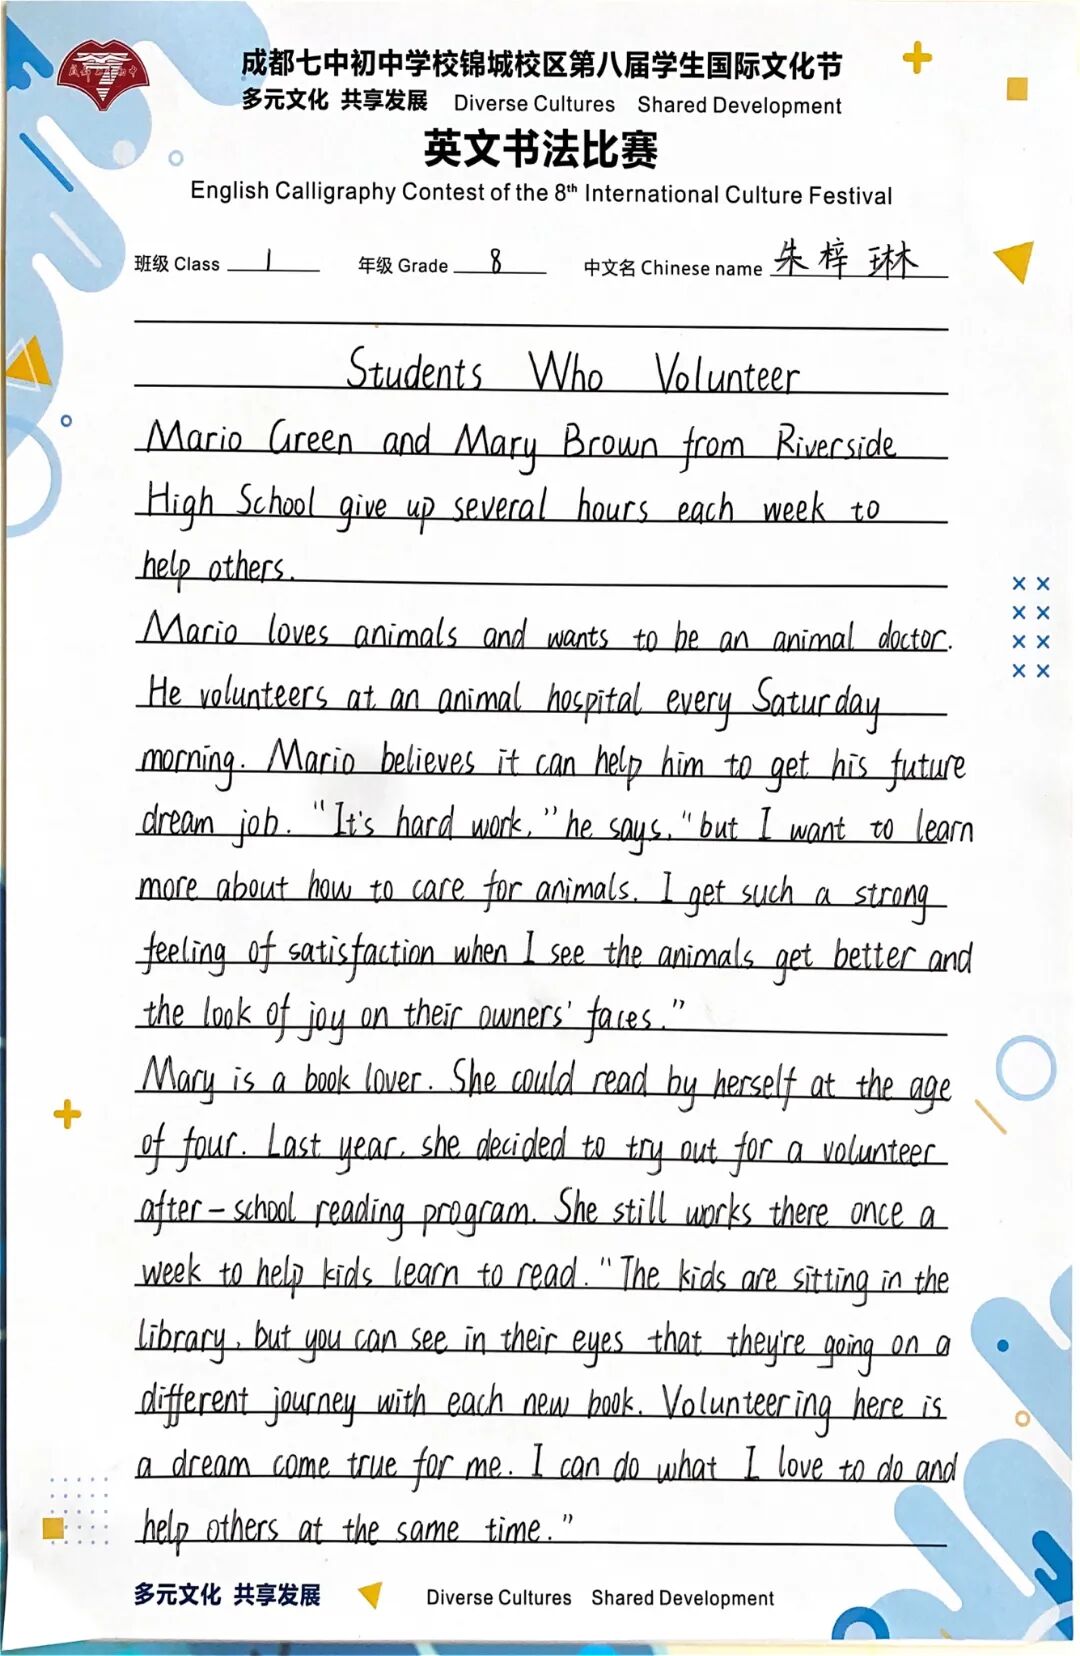 成都七中初中学校锦城校区第八届学生国际文化节
多元文化 共享发展 Diverse Cultures Shared Development
英文书法比赛
English Calligraphy Contest of the 8th International Culture Festival
班级 Class 1 年级 Grade 8 中文名 Chinese name 朱梓琳
Students Who Volunteer
Mario Green and Mary Brown from Riverside
High School give up several hours each week to
help others.
Mario loves animals and wants to be an animal doctor.
He volunteers at an animal hospital every Saturday
morning. Mario believes it can help him to get his future
dream job. "It's hard work," he says, "but I want to learn
more about how to care for animals. I get such a strong
feeling of satisfaction when I see the animals get better and
the look of joy on their owners' faces."
Mary is a book lover. She could read by herself at the age
of four. Last year, she decided to try out for a volunteer
after-school reading program. She still works there once a
week to help kids learn to read. "The kids are sitting in the
library, but you can see in their eyes that they're going on a
different journey with each new book. Volunteering here is
a dream come true for me. I can do what I love to do and
help others at the same time."
多元文化 共享发展 Diverse Cultures Shared Development